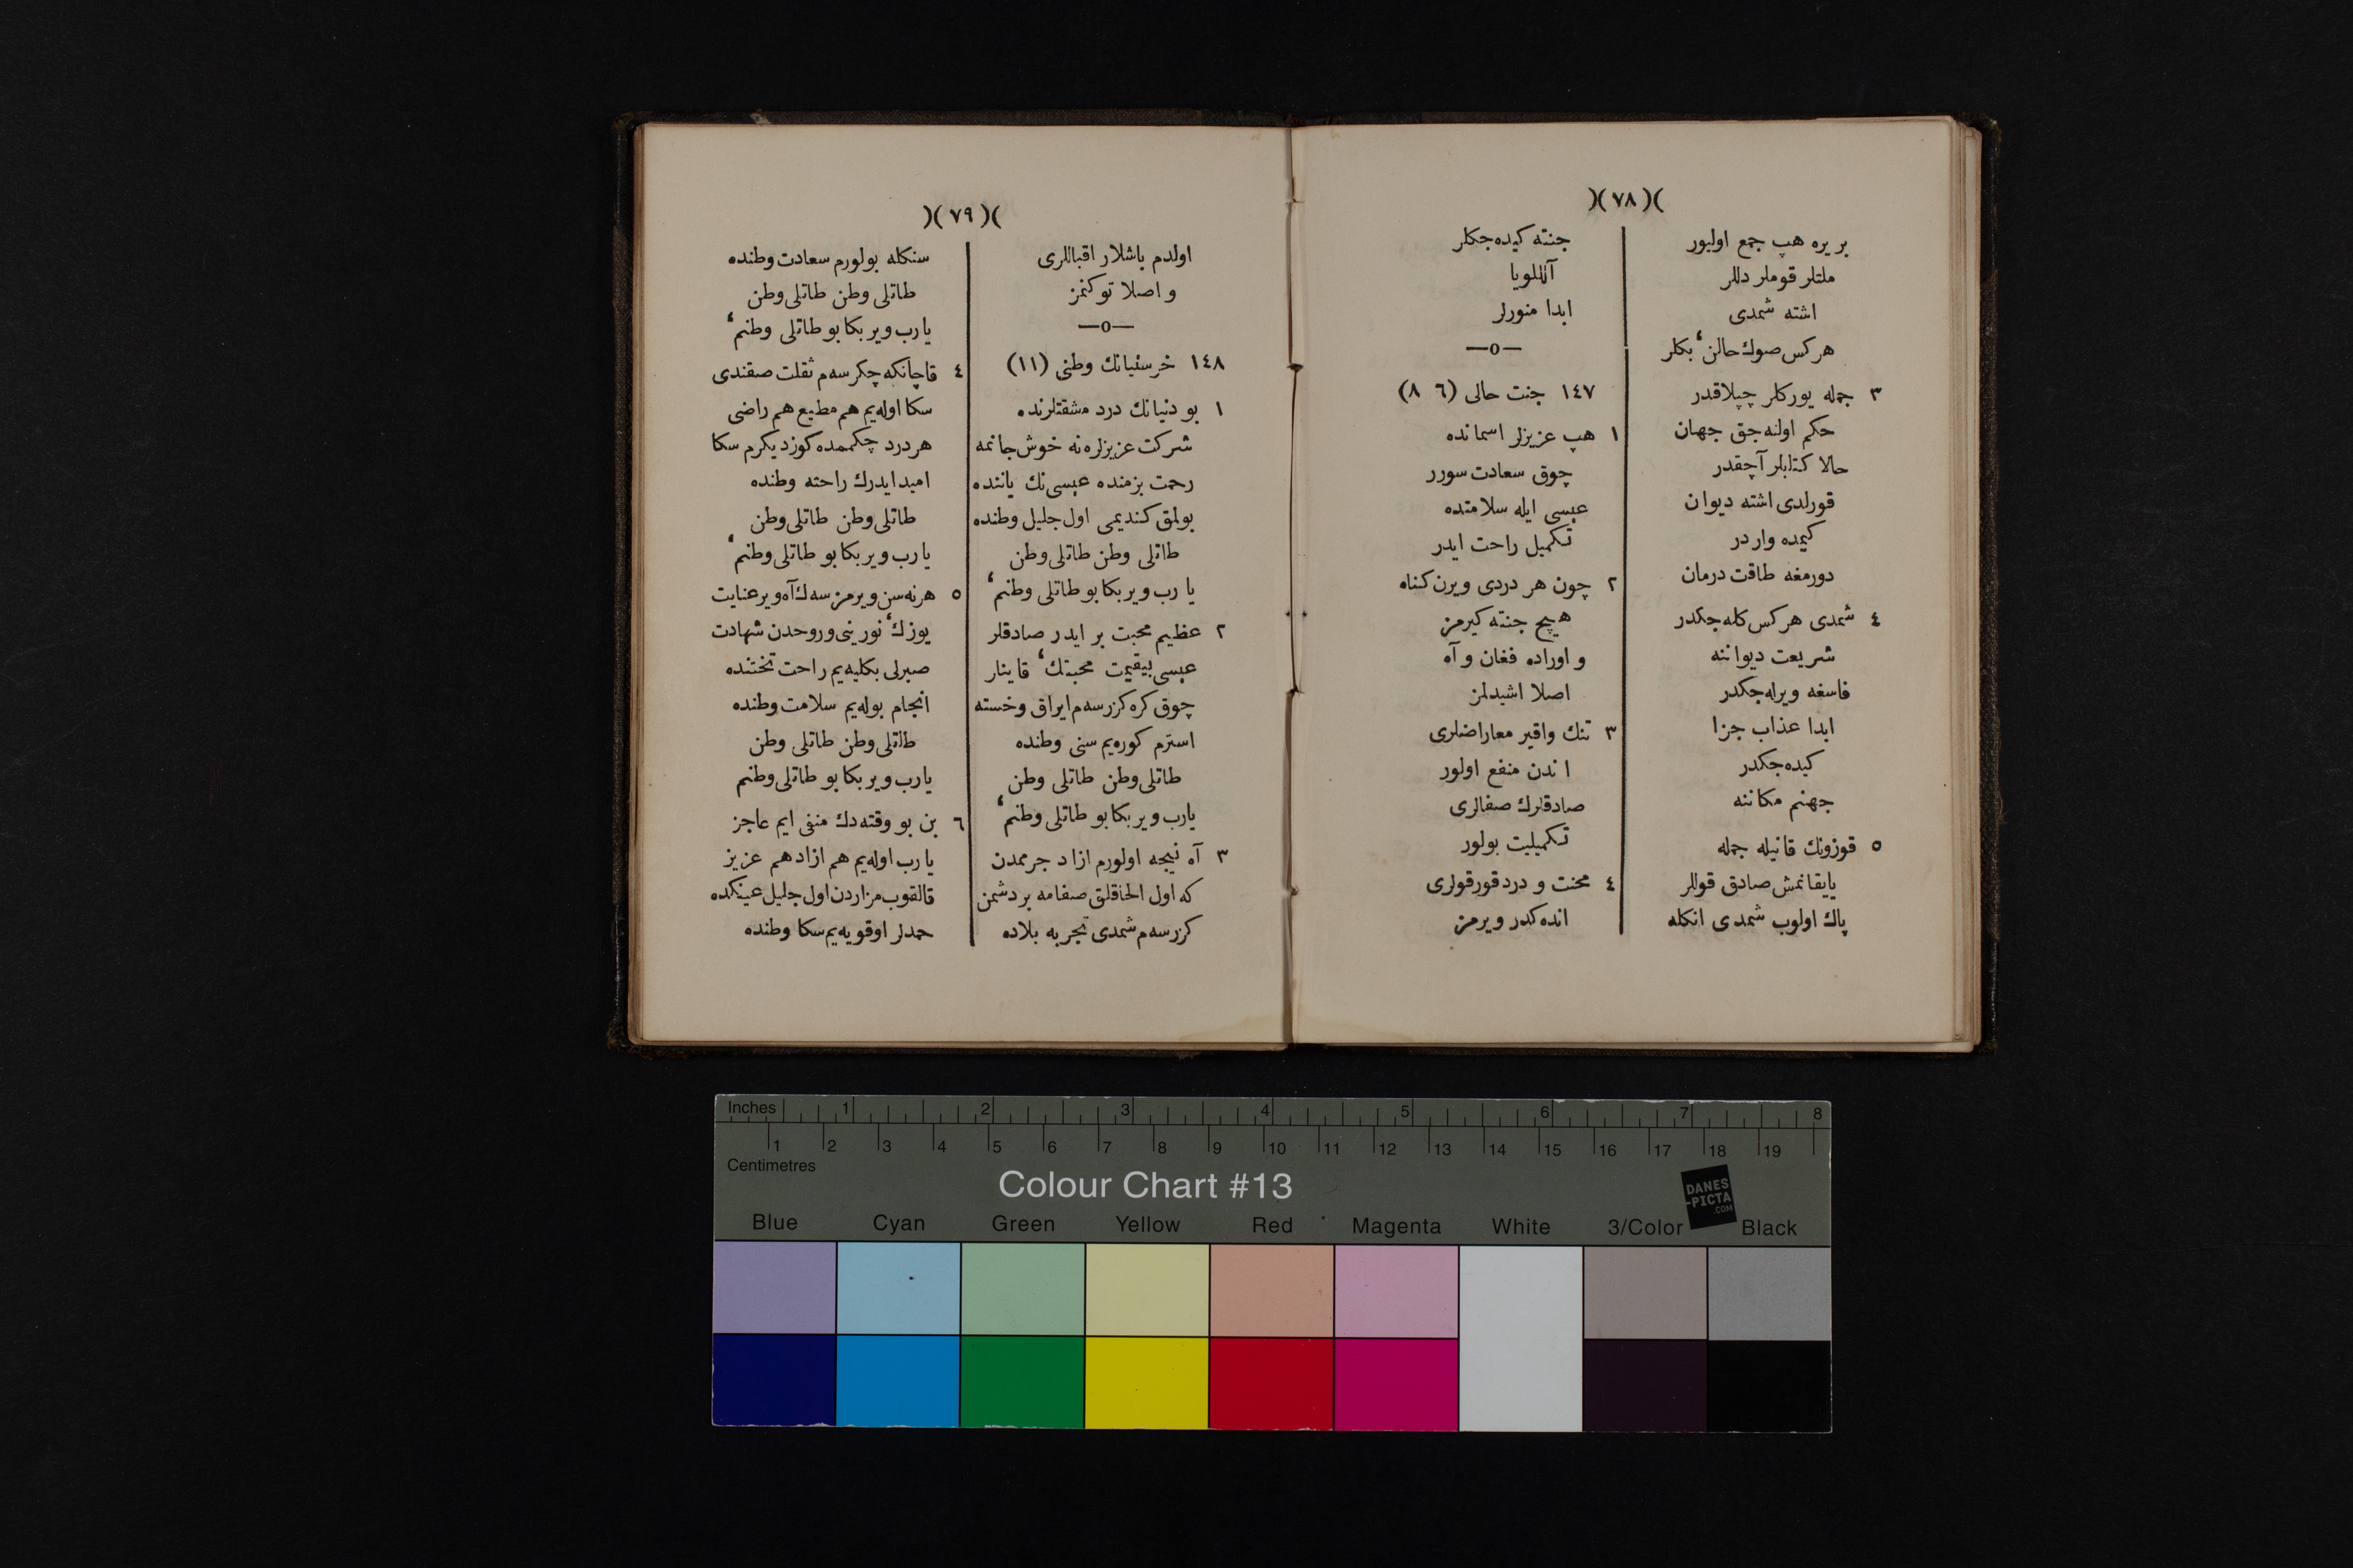 )(٧٨)(
بر يره هپ جمع اوليور
ملتلر قوملر دللر
اشته شمدى
هركس صوك حالن، بكلر
٣ جمله يوركلر چپلاقدر
حكم اولنه‌جق جهان
حالا كتابلر آچقدر
قورلدى اشته ديوان
كيمده واردر
دورمغه طاقت درمان
٤ شمدى هركس كله‌جكدر
شريعت ديواننه
فاسغه ويرله‌جكدر
ابدا عذاب جزا
كيده‌جكدر
جهنم مكاننه
٥ قوزونك قانيله جمله
يايقانمش صادق قوللر
پاك اولوب شمدى انكله
جنته كيده‌جكلر
آللويا
ابدا منورلر
—o—
١٤٧ جنت حالى (٦ ٨)
١ هپ عزيزلر اسمانده
چوق سعادت سورر
عيسى ايله سلامتده
تكميل راحت ايدر
٢ چون هر دردى ويرن كناه
هيچ جنته كيرمز
و اوراده فغان و آه
اصلا اشيدلمز
٣ تنك واقير معاراضلرى
اندن منفع اولور
صادقلرك صفالرى
تكميليت بولور
٤ محنت و درد قورقولرى
انده كدر ويرمز
)(٧٩)(
اولدم باشلار اقباللرى
و اصلا توكنمز
—o—
١٤٨ خرستيانك وطنى (١١)
١ بو دنيانك درد مشقتلرنده
شركت عزيزلره نه خوش جانمه
رحمت بزمنده عيسى‌نك ياننده
بولمق كنديمى اول جليل وطنده
طاتلى وطن طاتلى وطن
يا رب وير بكا بو طاتلى وطنم،
٢ عظيم محبت بر ايدر صادقلر
عيسى بيقيمت محبتك، قاينار
چوق كره كزرسه‌م ايراق وخسته
استرم كوره‌يم سنى وطنده
طاتلى وطن طاتلى وطن
يارب وير بكا بو طاتلى وطنم،
٣ آه نيجه اولورم ازاد جرممدن
كه اول الحاقلق صفامه بر دشمن
كزرسه‌م شمدى تجربه بلاده
سنكله بولورم سعادت وطنده
طاتلى وطن طاتلى وطن
يا رب وير بكا بو طاتلى وطنم،
٤ قاچانكه چكرسه‌م ثقلت صقندى
سكا اوله‌يم هم مطيع هم راضى
هر درد چكممده كوزديكرم سكا
اميد ايدرك راحته وطنده
طاتلى وطن طاتلى وطن
يا رب وير بكا بو طاتلى وطنم،
٥ هرنه‌سن ويرمزسه‌ك آه وير عنايت
يوزك، نورينى وروحدن شهادت
صبرلى بكليه‌يم راحت تختنده
انجام بوله‌يم سلامت وطنده
طاتلى وطن طاتلى وطن
يارب وير بكا بو طاتلى وطنم
٦ بن بو وقته‌دك منفى ايم عاجز
يا رب اوله‌يم هم ازاد هم عزيز
قالقوب مزاردن اول جليل عينكده
حمدلر اوقويه‌يم سكا وطنده
Inches 1 2 3 4 5 6 7 8
1 2 3 4 5 6 7 8 9 10 11 12 13 14 15 16 17 18 19
Centimetres
Colour Chart #13
DANES
-PICTA
.COM
Blue Cyan Green Yellow Red Magenta White 3/Color Black